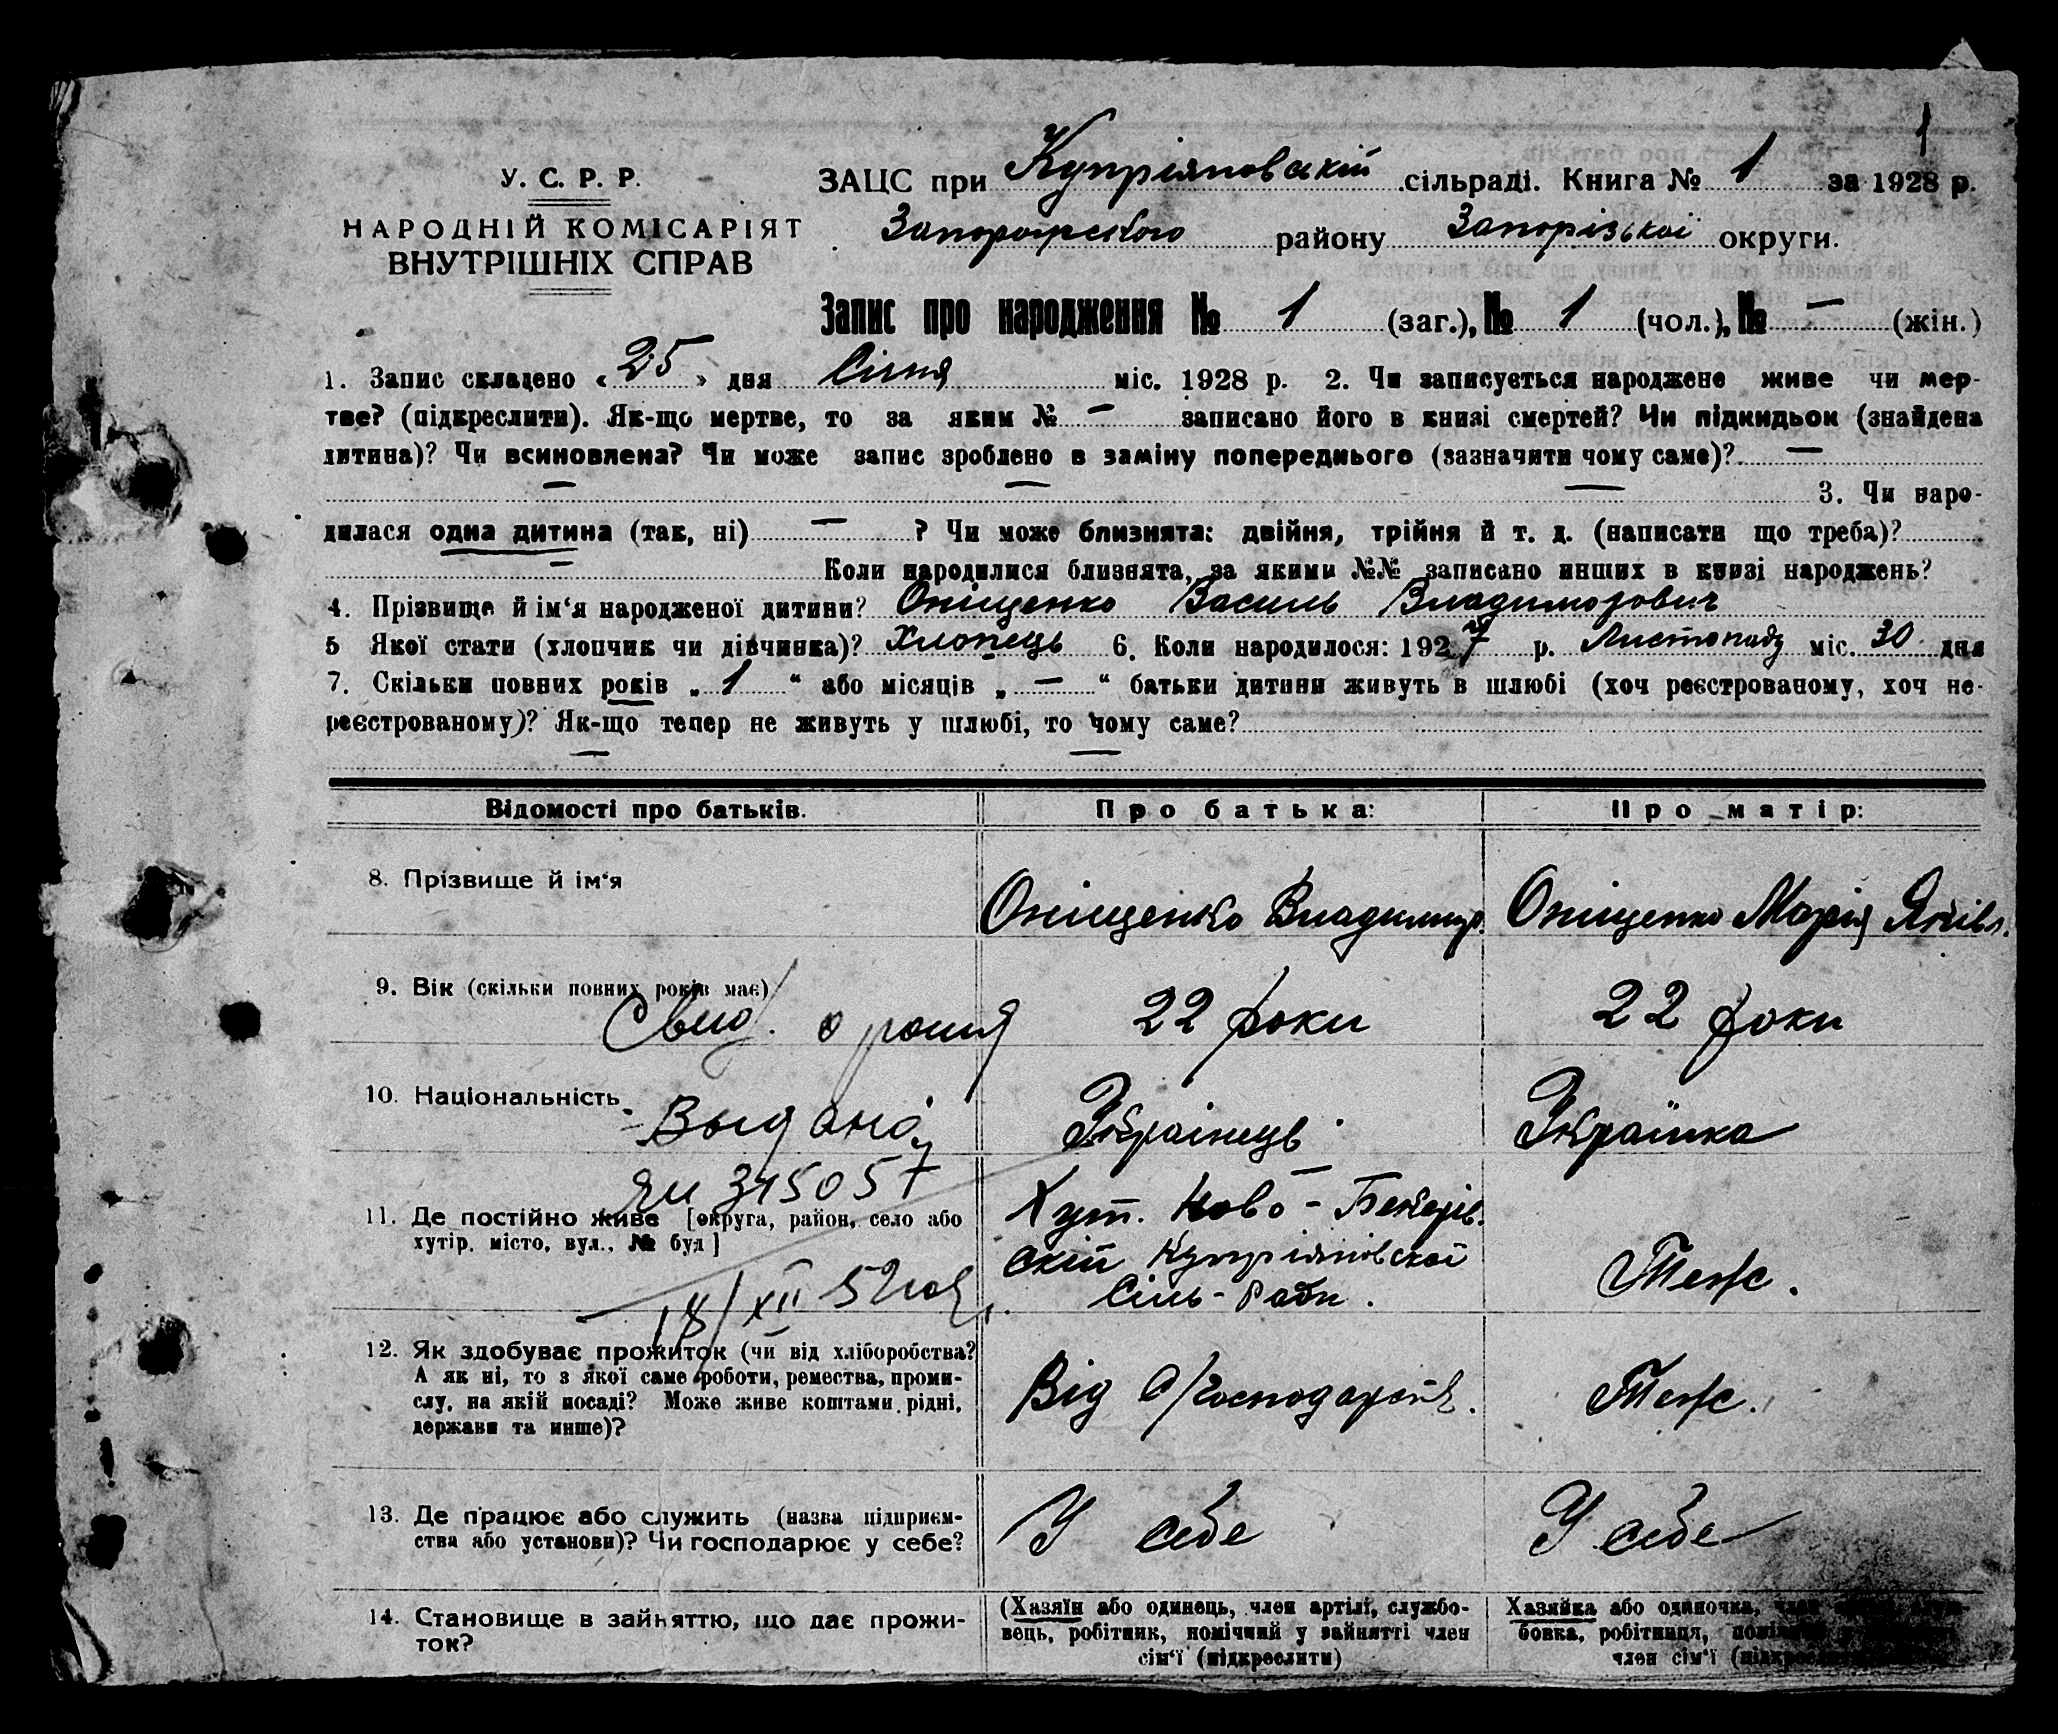 1
У. С. Р. Р.
НАРОДНІЙ КОМІСАРІЯТ
ВНУТРІШНІХ СПРАВ
ЗАЦС при Купріяновській сільраді. Книга № 1 за 1928 р.
Запорожського району Запорізької округи.
Запис про народження № 1 (заг.), № 1 (чол.), № — (жін.)
1. Запис складено « 25 » дня Січня міс. 1928 р. 2. Чи записується народжене живе чи мер-
тве? (підкреслити). Як-що мертве, то за яким № — записано його в книзі смертей? Чи підкидьок (знайдена
дитина)? Чи всиновлена? Чи може запис зроблено в заміну попереднього (зазначити чому саме)? —
— — — 3. Чи наро-
дилася одна дитина (так, ні) — ? Чи може близнята: двійня, трійня й т. д. (написати що треба)?
— Коли народилися близнята, за якими №№ записано инших в книзі народжень?
4. Прізвище й ім‘я народженої дитини? Оніщенко Василь Владимирович
5 Якої стати (хлопчик чи дівчинка)? Хлопець 6. Коли народилося: 1927 р. Листопаду міс. 30 дня
7. Скільки повних років „ 1 “ або місяців „ — “ батьки дитини живуть в шлюбі (хоч реєстрованому, хоч не-
реєстрованому)? Як-що тепер не живуть у шлюбі, то чому саме?
— —
Відомості про батьків. Про батька: Про матір:
8. Прізвище й ім‘я Оніщенко Владимир. Оніщенко Марія Яківл.
9. Вік (скільки повних років має) 22 роки 22 роки
Свид. о рожд
10. Національність Українець Українка
Выдано
ЯИ 315057
11. Де постійно живе [округа, район, село або
хутір, місто, вул., № буд]
Хут. Ново-Бекерів.
ский Купріяновскої
Сіль-Ради.
Теж.
18/XII 52
12. Як здобуває прожиток (чи від хліборобства?
А як ні, то з якої саме роботи, ремества, проми-
слу, на якій посаді? Може живе коштами рідні,
держави та инше)?
Від С/господарств. Теж.
13. Де працює або служить (назва підприєм-
ства або установи)? Чи господарює у себе?
У себе У себе
14. Становище в зайняттю, що дає прожи-
ток?
(Хазяїн або одинець, член артілі, службо-
вець, робітник, помічний у зайнятті член
сім‘ї (підкреслити)
Хазяйка або одиночка,
бовка, робітниця,
член сім‘ї